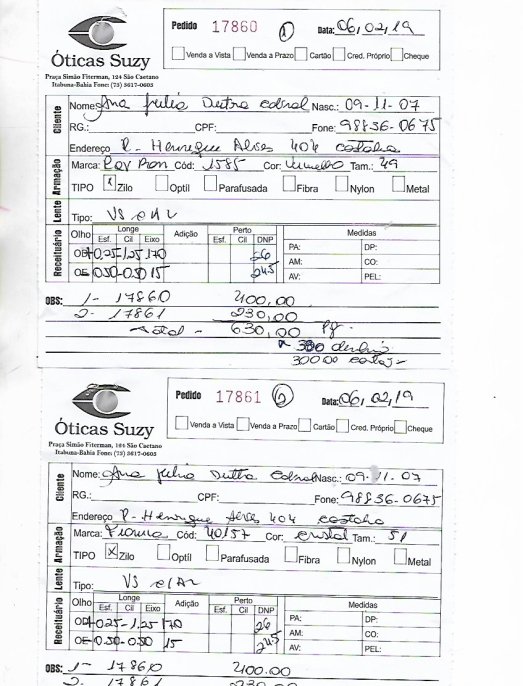 Pedido 17860 1 Data: 06,02,19
Venda a Vista Venda a Prazo Cartão Cred. Próprio Cheque
Óticas Suzy
Praça Simão Fiterman, 124 São Caetano
Itabuna-Bahia Fone: (73) 3617-0605
Cliente
Nome: Ana Julia Dutra Cabral Nasc.: 09-11-07
RG.: CPF: Fone: 98836-0675
Endereço R- Henrique Alves 404
Armação
Marca: Ray Ban Cód: 1585 Cor: Vermelho Tam.: 49
TIPO X Zilo Optil Parafusada Fibra Nylon Metal
Lente
Tipo: VS c/AR
Receituário
Olho Longe Adição Perto Medidas
Esf. Cil Eixo Esf. Cil DNP
OD +0,25 -1,25 170 26 PA: DP:
AM: CO:
OE -0,50 -0,50 15 24,5 AV: PEL:
OBS: 1- 17860 400,00
2- 17861 230,00
Total - 630,00 Pg.
300,00
Pedido 17861 2 Data: 06,02,19
Venda a Vista Venda a Prazo Cartão Cred. Próprio Cheque
Óticas Suzy
Praça Simão Fiterman, 124 São Caetano
Itabuna-Bahia Fone: (73) 3617-0605
Cliente
Nome: Ana Julia Dutra Cabral Nasc.: 09-11-07
RG.: CPF: Fone: 98836-0675
Endereço R- Henrique Alves 404
Armação
Marca: Cód: 40/57 Cor: cristal Tam.: 51
TIPO X Zilo Optil Parafusada Fibra Nylon Metal
Lente
Tipo: VS c/AR
Receituário
Olho Longe Adição Perto Medidas
Esf. Cil Eixo Esf. Cil DNP
OD +0,25 -1,25 170 26 PA: DP:
AM: CO:
OE -0,50 -0,50 15 24,5 AV: PEL:
OBS: 1- 17860 400.00
2- 17861 230,00